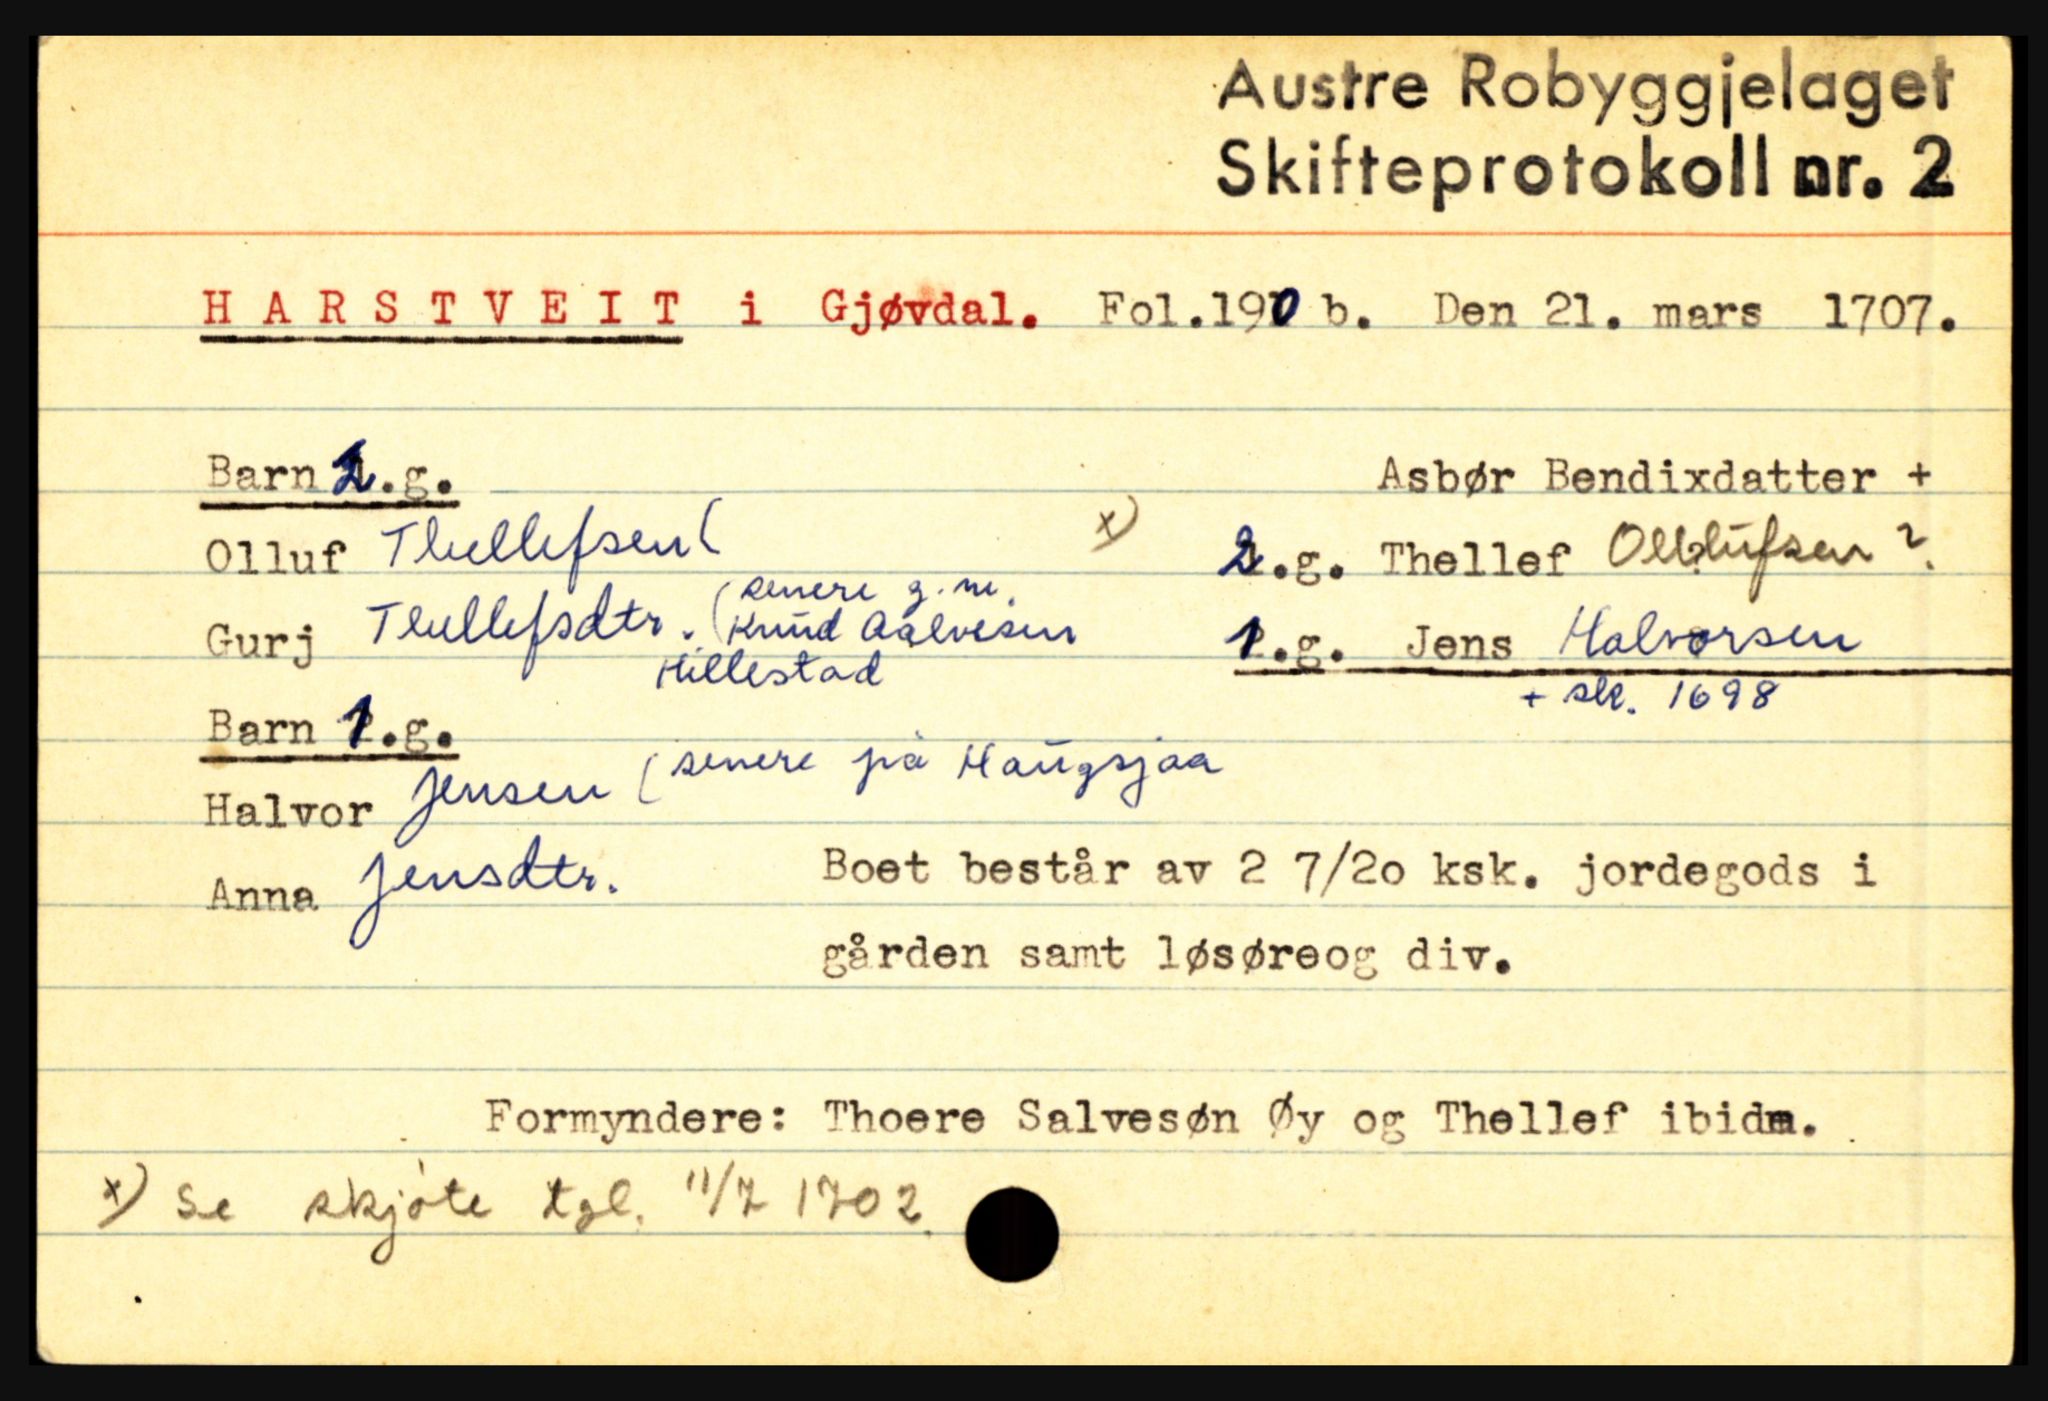 Austre Robyggjelaget
Skifteprotokoll nr. 2
HARSTVEIT i Gjøvdal. Fol.190 b. Den 21. mars 1707.
Barn 2.g.
Asbør Bendixdatter +
Olluf Thellefsen (
x) 2.g. Thellef Ollufsen ?
Gurj Thellefsdtr. (senere g. m.
Knud Aalvesen
Hillestad
1.g. Jens Halvorsen
+ sk. 1698
Barn 1.g.
Halvor Jensen (senere på Haugsjaa
Anna Jensdtr.
Boet består av 2 7/20 ksk. jordegods i
gården samt løsøreog div.
Formyndere: Thoere Salvesøn Øy og Thellef ibidm.
x) Se skjøte tgl. 11/7 1702.